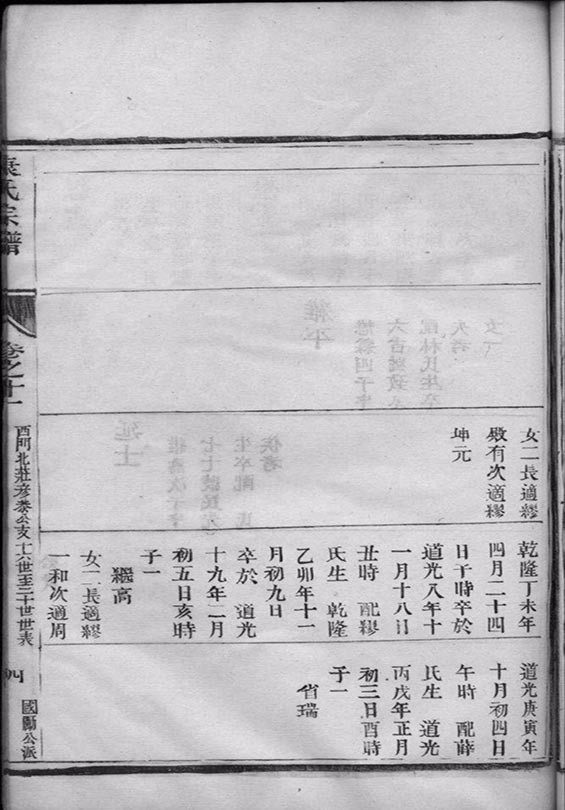 女二長適繆
啟有次適繆
坤元
乾隆丁未年
四月二十四
日午時卒於
道光八年十
一月十八日
丑時 配繆
氏生 乾隆
乙卯年十一
月初九日
卒於 道光
十九年二月
初五日亥時
子一
繼高
女二長適繆
一和次適周
道光庚寅年
十月初四日
午時 配薛
氏生 道光
丙戌年正月
初三日酉時
子一
省瑞
袁氏宗譜
卷之十一
西門北莊彥泰公支十六世至二十世世表
四
國顯公派